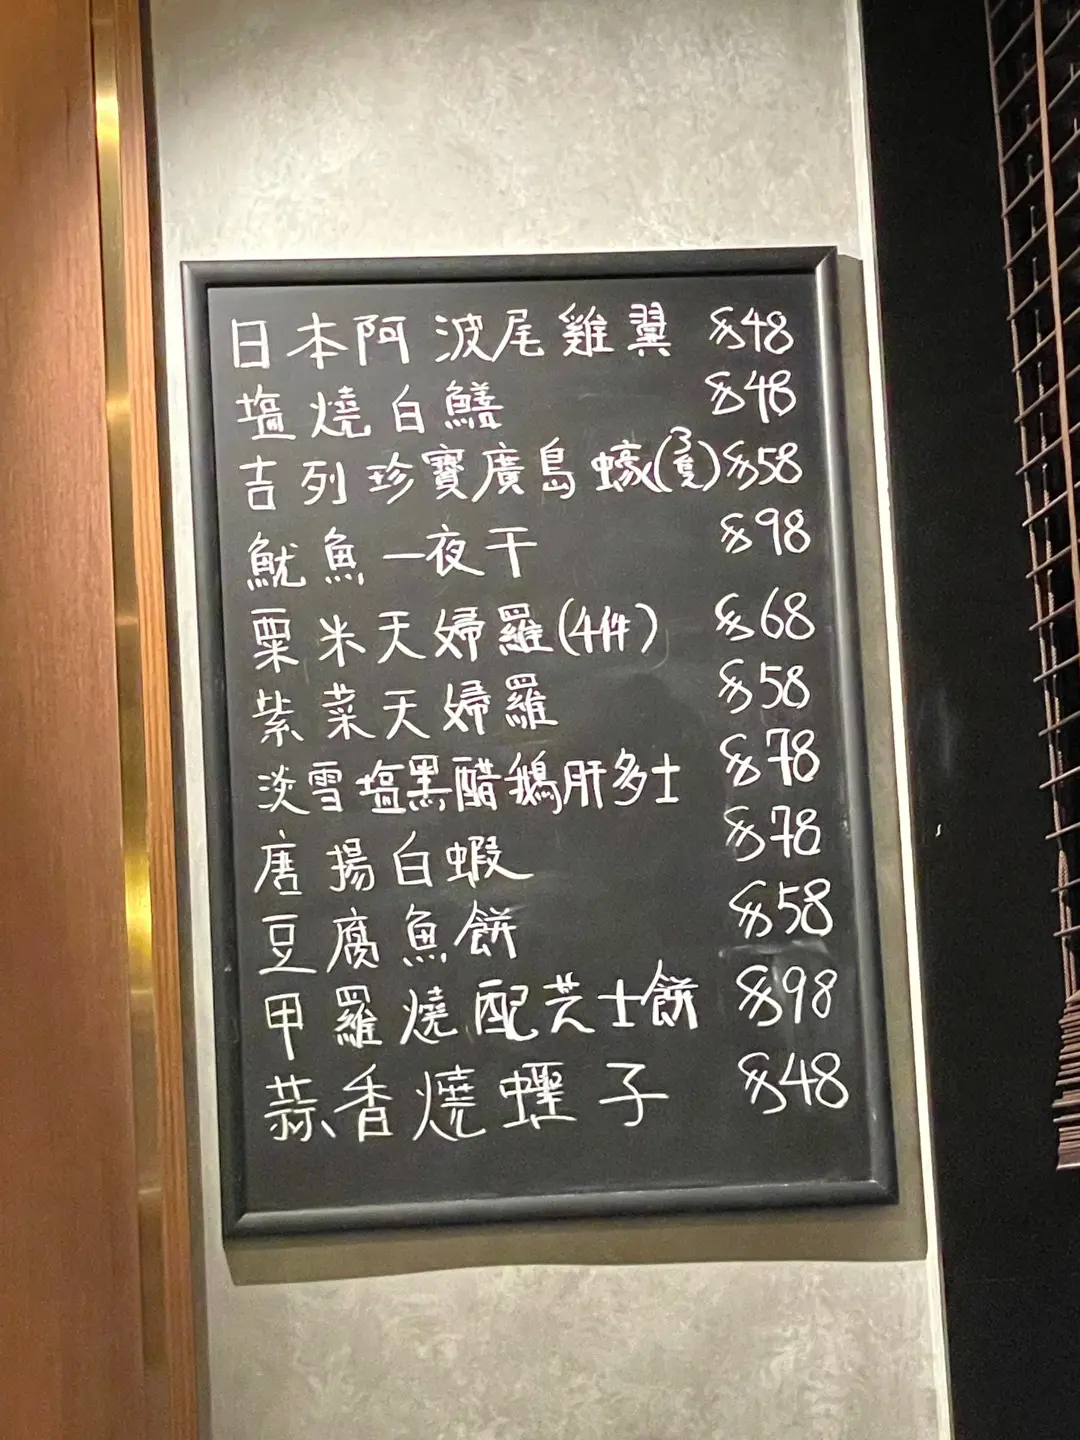 日本阿波尾雞翼 $48
塩燒白鱔 $48
吉列珍寶廣島蠔(3隻) $58
魷魚一夜干 $98
粟米天婦羅(4件) $68
紫菜天婦羅 $58
淡雪塩黑醋鵝肝多士 $78
唐揚白蝦 $78
豆腐魚餅 $58
甲羅燒配芝士餅 $98
蒜香燒蟶子 $48